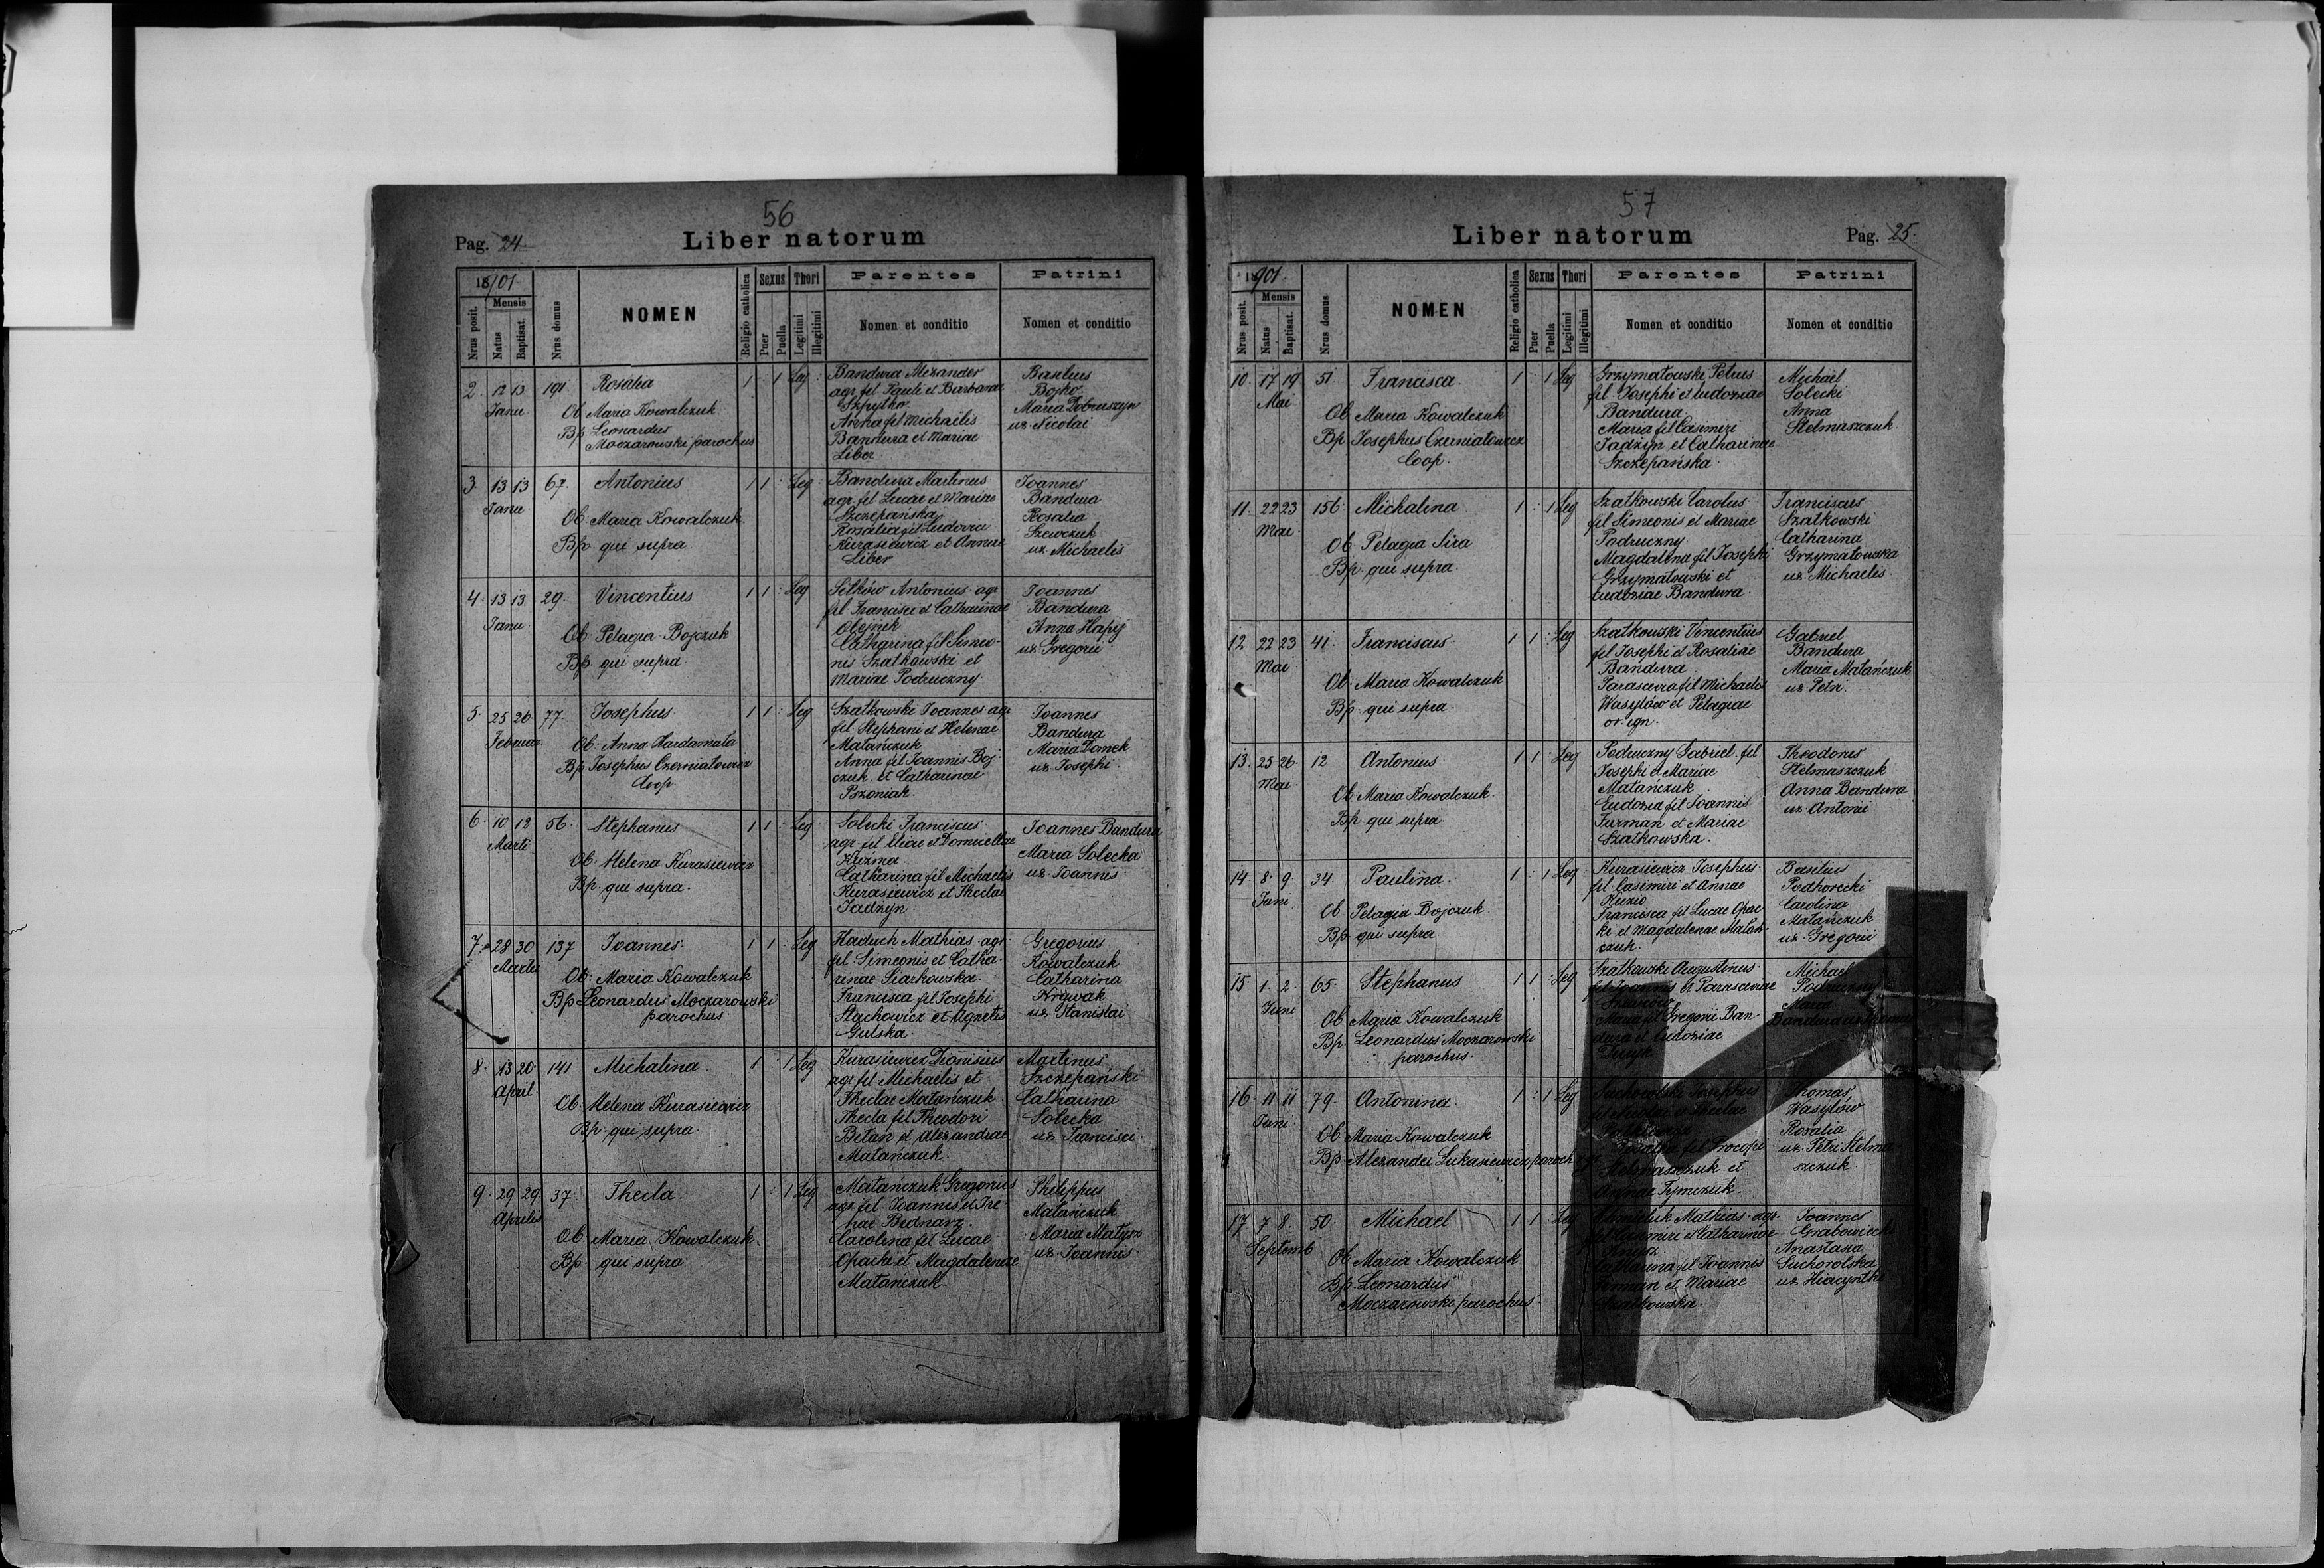 56
Pag. 24
Liber natorum
1901
Mensis
Nrus posit.
Natus
Baptisat.
Nrus domus
NOMEN
Religio catholica
Sexus
Puer
Puella
Thori
Legitimi
Illegitimi
Parentes
Nomen et conditio
Patrini
Nomen et conditio
2. 12 13 191 Rosalia 1 : 1 Leg :
Janu
Ob Maria Kowalczuk
Bp Leonardus
Moczarowski parochus
Bandura Alexander
agr. fil Pauli et Barbarae
Szpytko
Anna fil Michaelis
Bandura et Mariae
Liber
Basilius
Bojko
Maria Dobruszyn
ux Nicolai
3. 13 13 67. Antonius 1 1 : Leg :
Janu
Ob Maria Kowalczuk
Bp qui supra
Bandura Martinus
agr. fil Lucae et Mariae
Szczepańska
Rosalia fil Ludovici
Kurasiewicz et Annae
Liber
Joannes
Bandura
Rosalia
Szewczuk
ux Michaelis
4. 13 13 29. Vincentius 1 1 : Leg
Janu
Ob Pelagia Bojczuk
Bp qui supra
Sitków Antonius agr
fil Francisci et Catharinae
Olejnik
Catharina fil Simeo-
nis Szatkowski et
Mariae Podruczny
Joannes
Bandura
Anna Hapij
ux Gregorii
5. 25 26 77 Josephus 1 1 : Leg
Februar
Ob. Anna Hardamała
Bp Josephus Czerniatowicz
Coop.
Szatkowski Joannes agr
fil Stephani et Helenae
Matańczuk
Anna fil Joannis Boj
czuk et Catharinae
Pszoniak.
Joannes
Bandura
Maria Domek
ux Josephi
6. 10 12 56. Stephanus 1 1 : Leg
Marti
Ob Helena Kurasiewicz
Bp. qui supra.
Solecki Franciscus
agr. fil Eliae et Domicellae
Kuźma
Catharina fil Michaelis
Kurasiewicz et Theclae
Jadżyn
Joannes Bandura
Maria Solecka
ux Joannis
7. 28 30 137 Joannes 1 1 : Leg
Martii
Ob: Maria Kowalczuk
Bp Leonardus Moczarowski
parochus
Haduch Mathias agr.
fil Simeonis et Catha-
rinae Siachowska
Francisca fil Josephi
Stachowicz et Agnetis
Gulska
Gregorius
Kowalczuk
Catharina
Nrywak
ux Stanislai
8. 13 20 141 Michalina 1 : 1 Leg
April
Ob. Helena Kurasiewicz
Bp. qui supra
Kurasiewicz Dionisius
agr fil Michaelis et
Theclae Matańczuk
Thecla fil Theodori
Bitan et Alexandrae
Matańczuk
Martinus
Szczepański
Catharina
Solecka
ux Francisci
9. 29 29 37. Thecla. 1 : 1 Leg
Aprilis
Ob. Maria Kowalczuk
Bp qui supra
Matańczuk Gregorius
agr. fil. Joannis et
Bednarz.
Carolina fil Lucae
Opacki et Magdalenae
Matańczuk
Philippus
Matańczuk
Maria Matysz
ux Joannis
57
Liber natorum
Pag. 25
1901
Mensis
Nrus posit.
Natus
Baptisat.
Nrus domus
NOMEN
Religio catholica
Sexus
Puer
Puella
Thori
Legitimi
Illegitimi
Parentes
Nomen et conditio
Patrini
Nomen et conditio
10. 17 19 51 Francisca 1 : 1 Leg
Mai
Ob Maria Kowalczuk
Bp Josephus Czerniatowicz
Coop.
Grzymałowski Petrus
fil Josephi et Eudoxiae
Bandura
Maria fil Casimiri
Jadżyn et Catharinae
Szczepańska
Michael
Solecki
Anna
Stelmaszczuk
11. 22 23 156. Michalina 1 : 1 Leg
Mai
Ob Pelagia Sira
Bp. qui supra.
Szatkowski Carolus
fil Simeonis et Mariae
Podruczny
Magdalena fil Josephi
Grzymałowski et
Eudoxiae Bandura
Franciscus
Szatkowski
Catharina
Grzymałowska
ux. Michaelis
12 22 23 41. Franciscus 1 1 : Leg
Mai
Ob. Maria Kowalczuk
Bp. qui supra.
Szatkowski Vincentius
fil Josephi et Rosaliae
Bandura
Parascevia fil Michaelis
Wasylów et Pelagiae
or. ign.
Gabriel
Bandura
Maria Matańczuk
ux. Petri
13. 25 26 12 Antonius 1 1 : Leg
Mai
Ob Maria Kowalczuk.
Bp qui supra
Podruczny Gabriel. fil
Josephi et Mariae
Matańczuk
Eudoxia fil Joannis
Furman et Mariae
Szatkowska.
Theodorus
Stelmaszczuk
Anna Bandura
ux Antonii
14 8 9. 34 Paulina. 1 : 1 Leg
Juni
Ob Pelagia Bojczuk.
Bp qui supra
Kurasiewicz Josephus
fil Casimiri et Annae
Kuzio
Francisca fil Lucae Opac
ki et Magdalenae Matań-
czuk
Basilius
Podhorecki
Carolina
Matańczuk
ux Gregorii
15. 1. 2. 65. Stephanus 1 1 : Leg
Juni
Ob Maria Kowalczuk
Bp. Leonardus Moczarowski
parochus.
Szatkowski Augustinus
fil Joannis et Parasceviae
Maria fil Gregorii Ban-
dura et Eudoxiae
Michael
Maria
Bandura ux
16. 11 11 79. Antonina 1 : 1 Leg
Juni
Ob Maria Kowalczuk
Bp. Alexander Lukasiewicz paroch
Suchorolski Josephus
fil Procopi
Stelmaszczuk et
Annae Tymczuk.
Thomas
Wasylów
Rosalia
ux. Petri Stelma
szczuk
17 7 8. 50. Michael 1 1 : Leg
Septemb
Ob Maria Kowalczuk
Bp Leonardus
Moczarowski parochus
Mathias agr.
Casimiri et Catharinae
Catharina fil Joannis
Furman et Mariae
Szatkowska.
Joannes
Grabowiecki
Anastasia
Suchorolska
ux. Hiacynthi